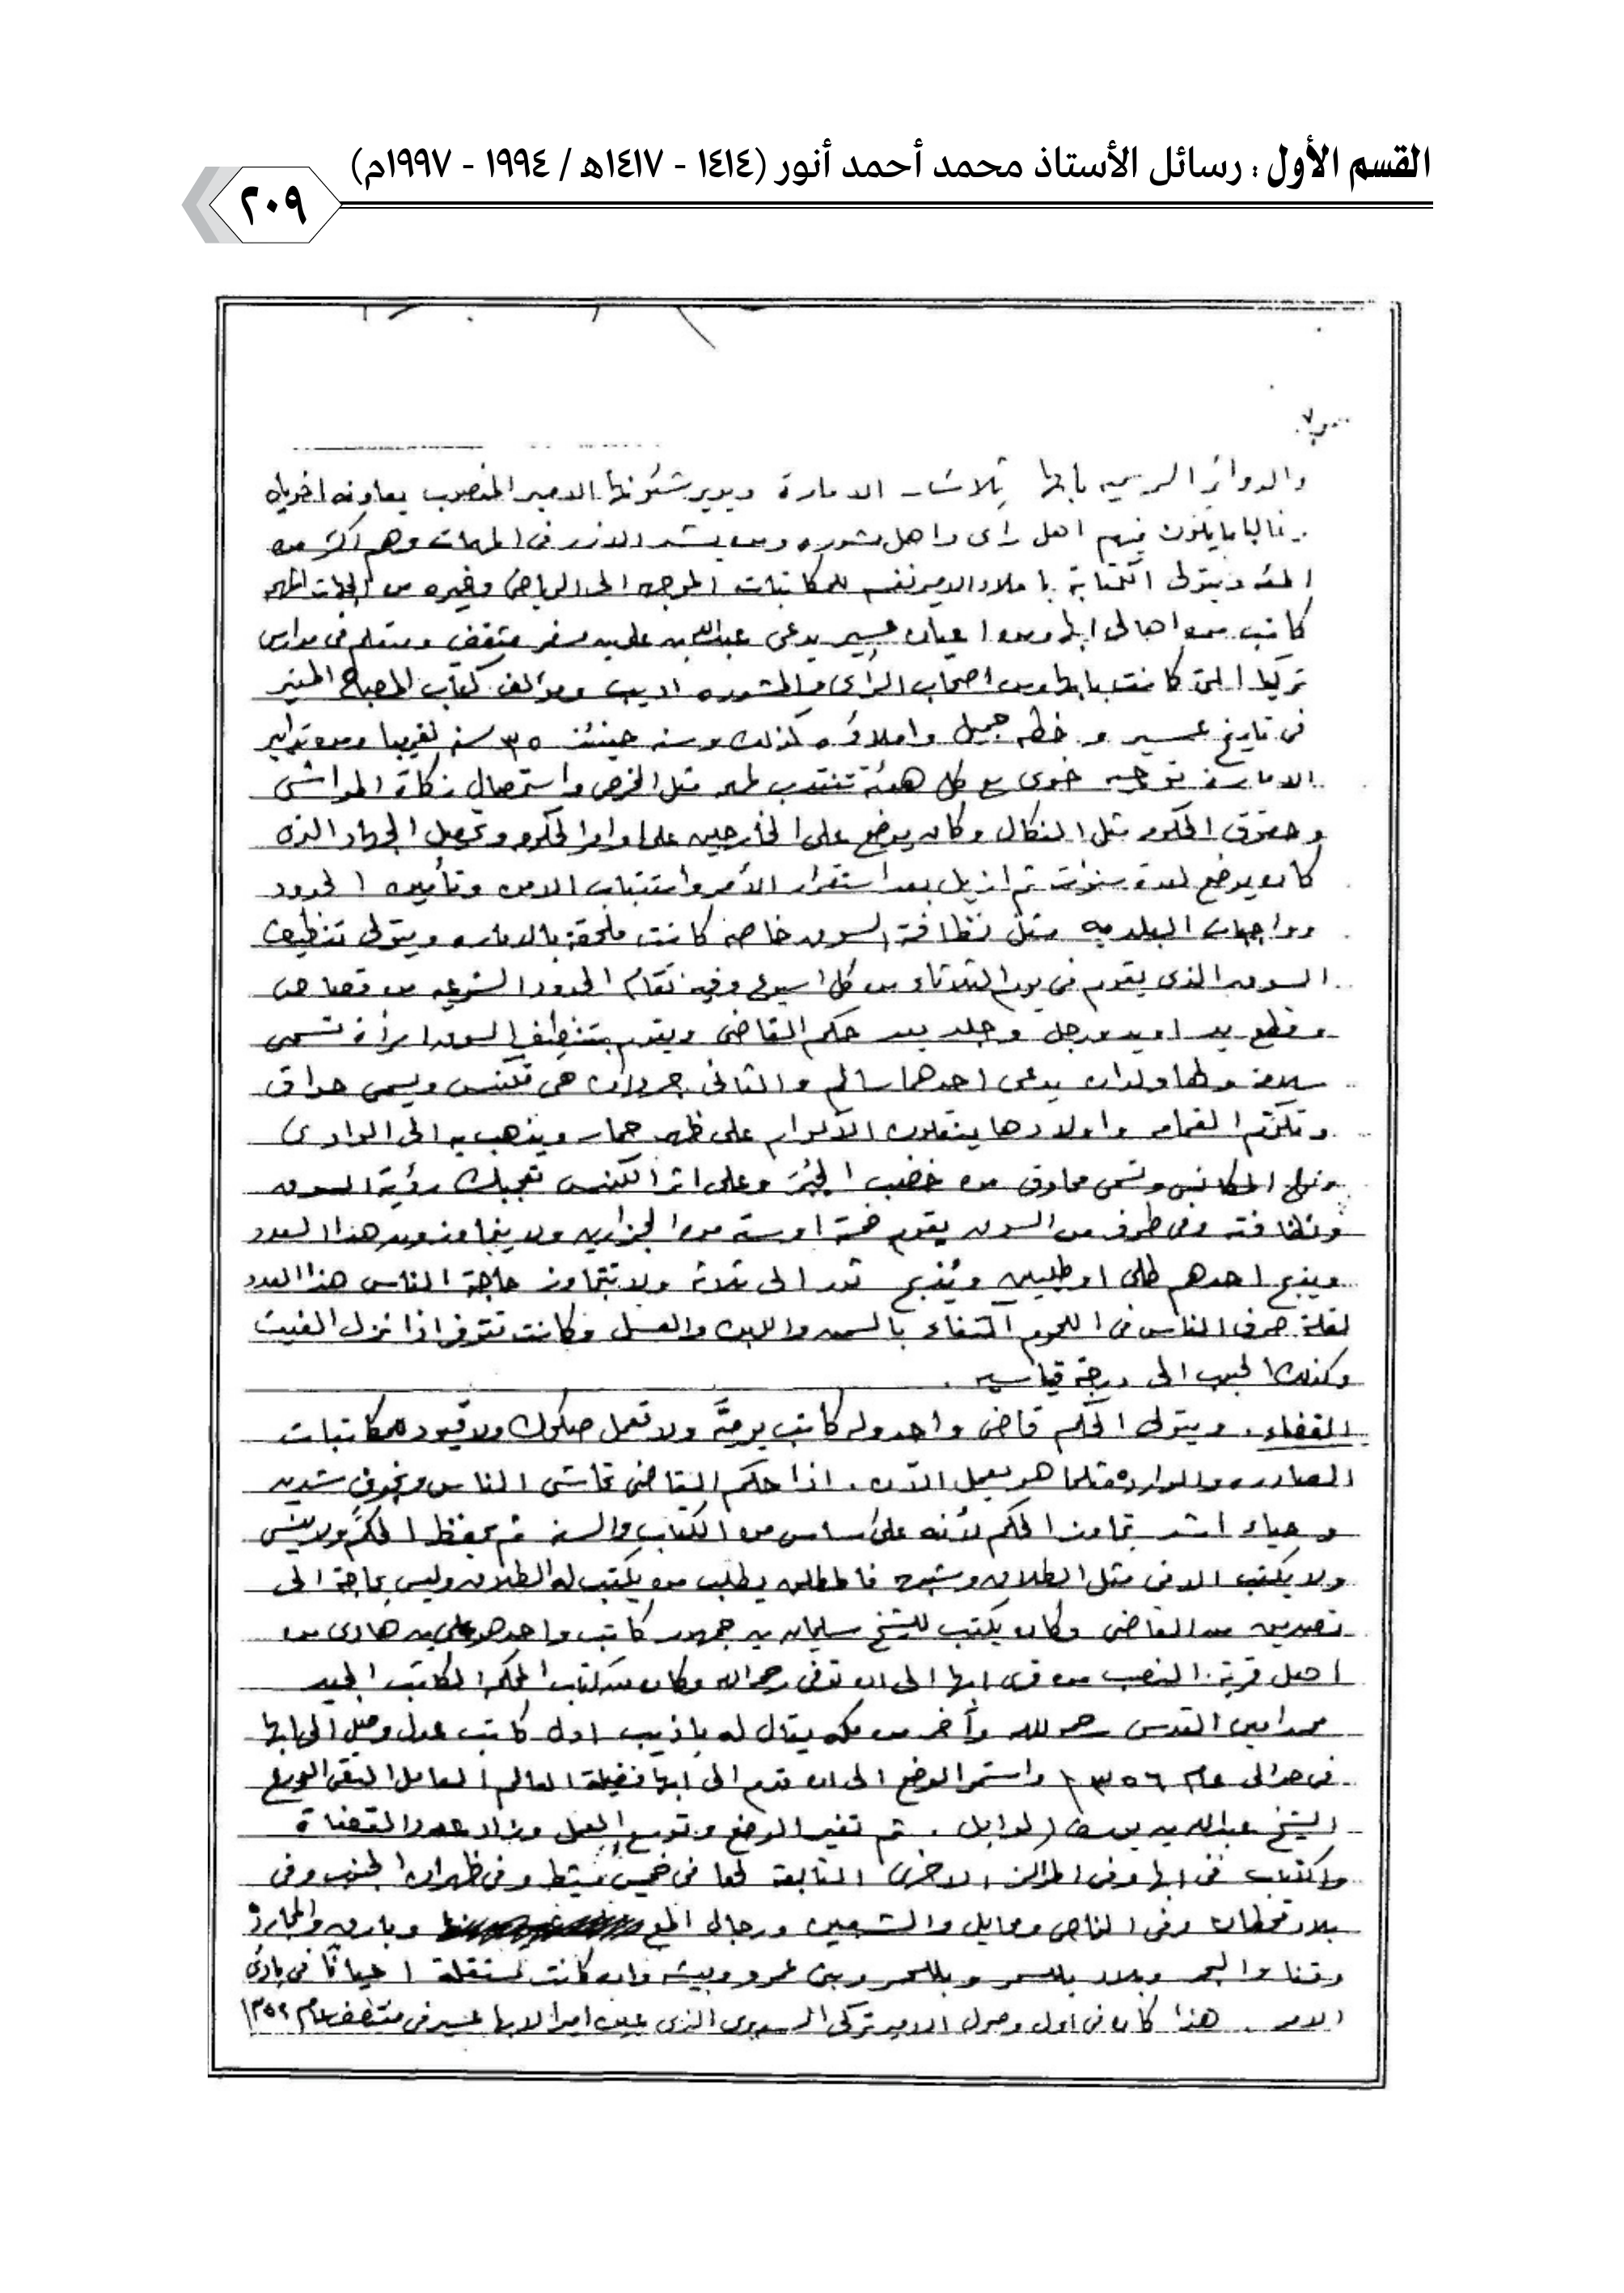 القسم الأول : رسائل الأستاذ محمد أحمد أنور (١٤١٤ - ١٤١٧هـ / ١٩٩٤ - ١٩٩٧م)
٢٠٩
والدوائر الرسميه بابها ثلاث الامارة ويدير شئونها الامير المنصوب يعاونه اخوياه
وغالبا ما يكون فيهم اهل راى واهل مشوره ومن يشد الازر فى المهمات وهم اكثر من
المئه ويتولى الكتابة باملاء الامير نفسه للمكاتبات الموجهه الى الرياض وغيره من الجهات
كاتب من اهالى ابها ومن اعيان عسير يدعى عبدالله بن على بن مسفر مثقف ومتعلم فى مدارس
تركيا التى كانت بابها ومن اصحاب الرأى والمشوره اديب ومؤلف كتاب المصباح المنير
فى تاريخ عسير و خطه جميل واملاؤه كذلك وسنه حينئذ ٣٥ سنه تقريبا ومن تدابير
الامارة توجيه خوى مع كل هيئة تنتدب مثل الخرص واستحصال زكاة المواشى
وحقوق الحكومه مثل النكال وكان يوضع على الخارجين على اوامر الحكومه وتحصيل الجهاد الذى
كان يوضع لعدة سنوات ثم ازيل بعد استقرار الأمر واستتباب الامن وتأمين الحدود
وواجبات البلديه مثل نظافة السوق خاصه كانت ملحقة بالاماره ويتولى تنظيف
السوق الذى يقوم فى يوم الثلاثاء من كل اسبوع وفيه تقام الحدود الشرعيه من قصاص
وقطع يد او يد ورجل وجلد بعد حكم القاضى ويقوم بتنظيف السوق امرأة تسمى
ولها ولدان يدعى احدهما سالم والثانى جروان هى تكنس ويسمى حواق
وتكوّم القمامه واولادها ينقلون الأكوام على ظهر حمار ويذهب به الى الوادى
المكانس وتسمى محاوق من وعلى اثر الكنس تعجبك رؤية السوق
ونظافته وفى طرف من السوق يقوم خمسة او ستة من الجزارين ولا يتجاوزون هذا العدد
ويذبح احدهم طلى او طليين ويُذبح ثور الى ثلاثه ولا تتجاوز حاجة الناس هذا العدد
لقلة صرف الناس فى اللحوم اكتفاء بالسمن واللبن والعسل وكانت تتوفر اذا نزل الغيث
وكذلك الحبوب الى درجة قياسيه .
القضاء . ويتولى الحكم قاضى واحد وله كاتب يوميّة ولا تعمل صكوك ولا قيود للمكاتبات
الصادره والوارده مثلما هو يعمل الآن . اذا حكم القاضى تحاشى الناس وبخوف شديد
وحياء اشد تجاوز الحكم لأنه على اساس من الكتاب والسنه ثم يحفظ الحكم ولا ينسى
ولا يكتب الا فى مثل الطلاق وشبهه فالمطلق يطلب من يكتب له الطلاق وليس بحاجة الى
تصديق من القاضى وكان يكتب للشيخ سليمان بن جمهور كاتب واحد هو على بن هادى من
اهل قرية النصب من قرى ابها الى ان توفى رحمه الله وكان من كتاب المحكمه الكاتب الجيد
محمد امين القدسى رحمه الله وآخر من مكه يقال له باذيب اول كاتب عدل وصل الى ابها
فى حوالى عام ١٣٥٦ واستمر الوضع الى ان قدم الى ابها فضيلة العالم العامل التقى الورع
الشيخ عبدالله بن يوسف الوابل . ثم تغير الوضع وتوسع العمل وزاد عدد القضاة
والكتاب فى ابها وفى المراكز الاخرى التابعة لها فى خميس مشيط وفى ظهران الجنوب وفى
بلاد قحطان وفى الناص ومحايل والشعبين ورجال المع وبارق والمجارده
وقنا والبحر وبلاد بللسمر وبللحمر وبنى عمرو وبيشه وان كانت مستقلة احيانًا فى بادئ
الامر . هذا كان فى اول وصول الامير تركى السديرى الذى عين اميرا لابها عسير فى منتصف عام ١٣٥٢